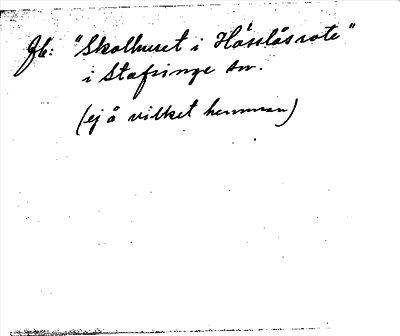 Jb: "Skolhuset i Hässlåsrote"
i Stafsinge sn.
(ej å vilket hemman)